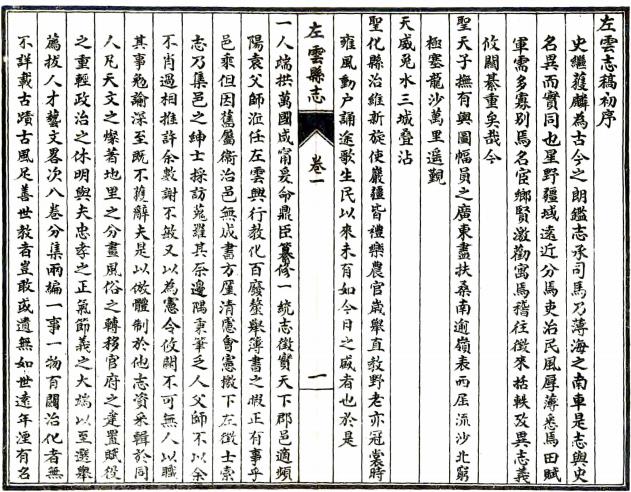 左雲志稿初序
史繼獲麟為古今之朗鑑志承司馬乃薄海之南車是志與史
名異而實同也星野疆域遠近分焉吏治民風厚薄悉焉田賦
軍需多寡別焉名宦鄉賢激勸寓焉稽往徵來括軼攷異志義
攸關綦重矣哉今
聖天子撫有輿圖幅員之廣東盡扶桑南逾嶺表西屈流沙北窮
極塞龍沙萬里遥覲
天威兎水三城叠沾
聖化縣治維新旋使巖疆皆禮樂農官歲舉直教野老亦冠裳時
雍風動戶誦途歌生民以來未有如今日之盛者也於是
左雲縣志
卷一
一
一人端拱萬國咸甯爰命鼎臣纂修一統志徵實天下郡邑適頻
陽袁父師涖任左雲興行教化百廢釐舉簿書之暇正有事乎
邑乘但因舊屬衛治邑無成書方厪清慮會憲檄下左徵士索
志乃集邑之紳士採訪蒐羅其奈邊隅秉筆乏人父師不以余
不肖過相推許余數謝不敏又以為憲令攸關不可無人以職
其事勉諭深至既不獲辭夫是以倣體制於他志資采輯於同
人凡天文之燦著地里之分畫風俗之轉移官府之建置賦役
之重輕政治之休明與夫忠孝之正氣節義之大端以至選舉
薦拔人才藝文畧次八卷分集兩編一事一物有關治化者無
不詳載古蹟古風足善世教者豈敢或遺無如世遠年湮有名